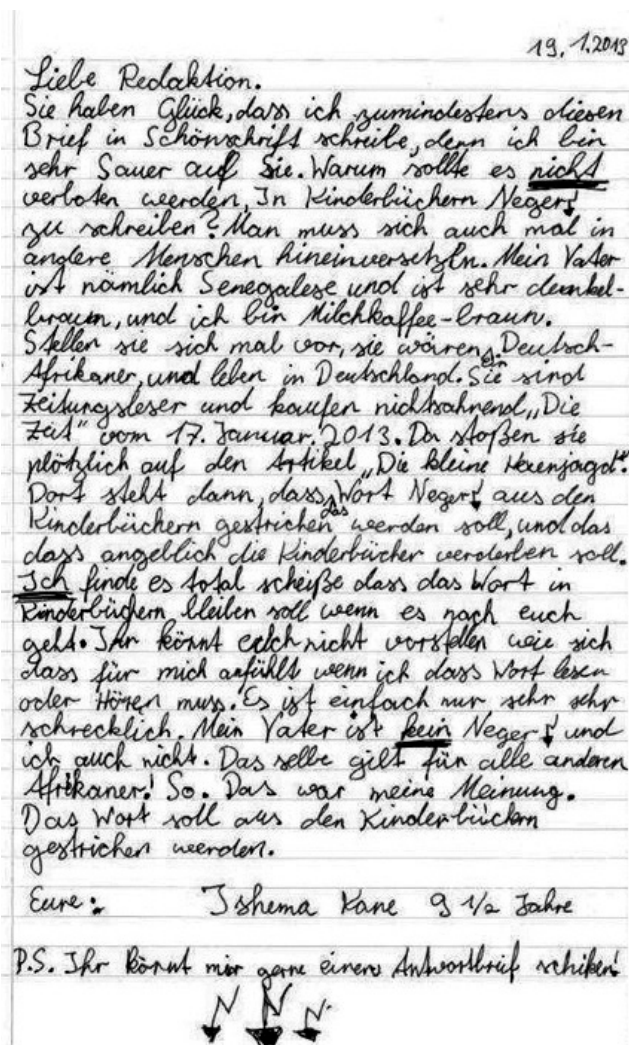 19. 1.2013
Liebe Redaktion.
Sie haben Glück, dass ich zumindestens diesen
Brief in Schönschrift schreibe, denn ich bin
sehr Sauer auf Sie. Warum sollte es nicht
verboten werden, In Kinderbüchern Neger
zu schreiben? Man muss sich auch mal in
andere Menschen hineinversetzln. Mein Vater
ist nämlich Senegalese und ist sehr dunkel-
braun, und ich bin Milchkaffee-braun.
Stellen sie sich mal vor, sie wären Deutsch-
Afrikaner, und leben in Deutschland. Sie sind
Zeitungsleser und kaufen nichtsahnend „Die
Zeit“ vom 17. Januar. 2013. Da stoßen sie
plötzlich auf den Artikel „Die kleine Hexenjagd“.
Dort steht dann, dass das Wort Neger aus den
Kinderbüchern gestrichen werden soll, und das
dass angeblich die Kinderbücher verderben soll.
Ich finde es total scheiße dass das Wort in
Kinderbüchern bleiben soll wenn es nach euch
geht. Ihr könnt euch nicht vorstellen wie sich
dass für mich anfühlt wenn ich dass Wort lesen
oder Hören muss. Es ist einfach nur sehr sehr
schrecklich. Mein Vater ist kein Neger und
ich auch nicht. Das selbe gilt für alle anderen
Afrikaner! So. Das war meine Meinung.
Das Wort soll aus den Kinderbüchern
gestrichen werden.
Eure: Ishema Kane 9 1/2 Jahre
P.S. Ihr könnt mir gerne einen Antwortbrief schiken!